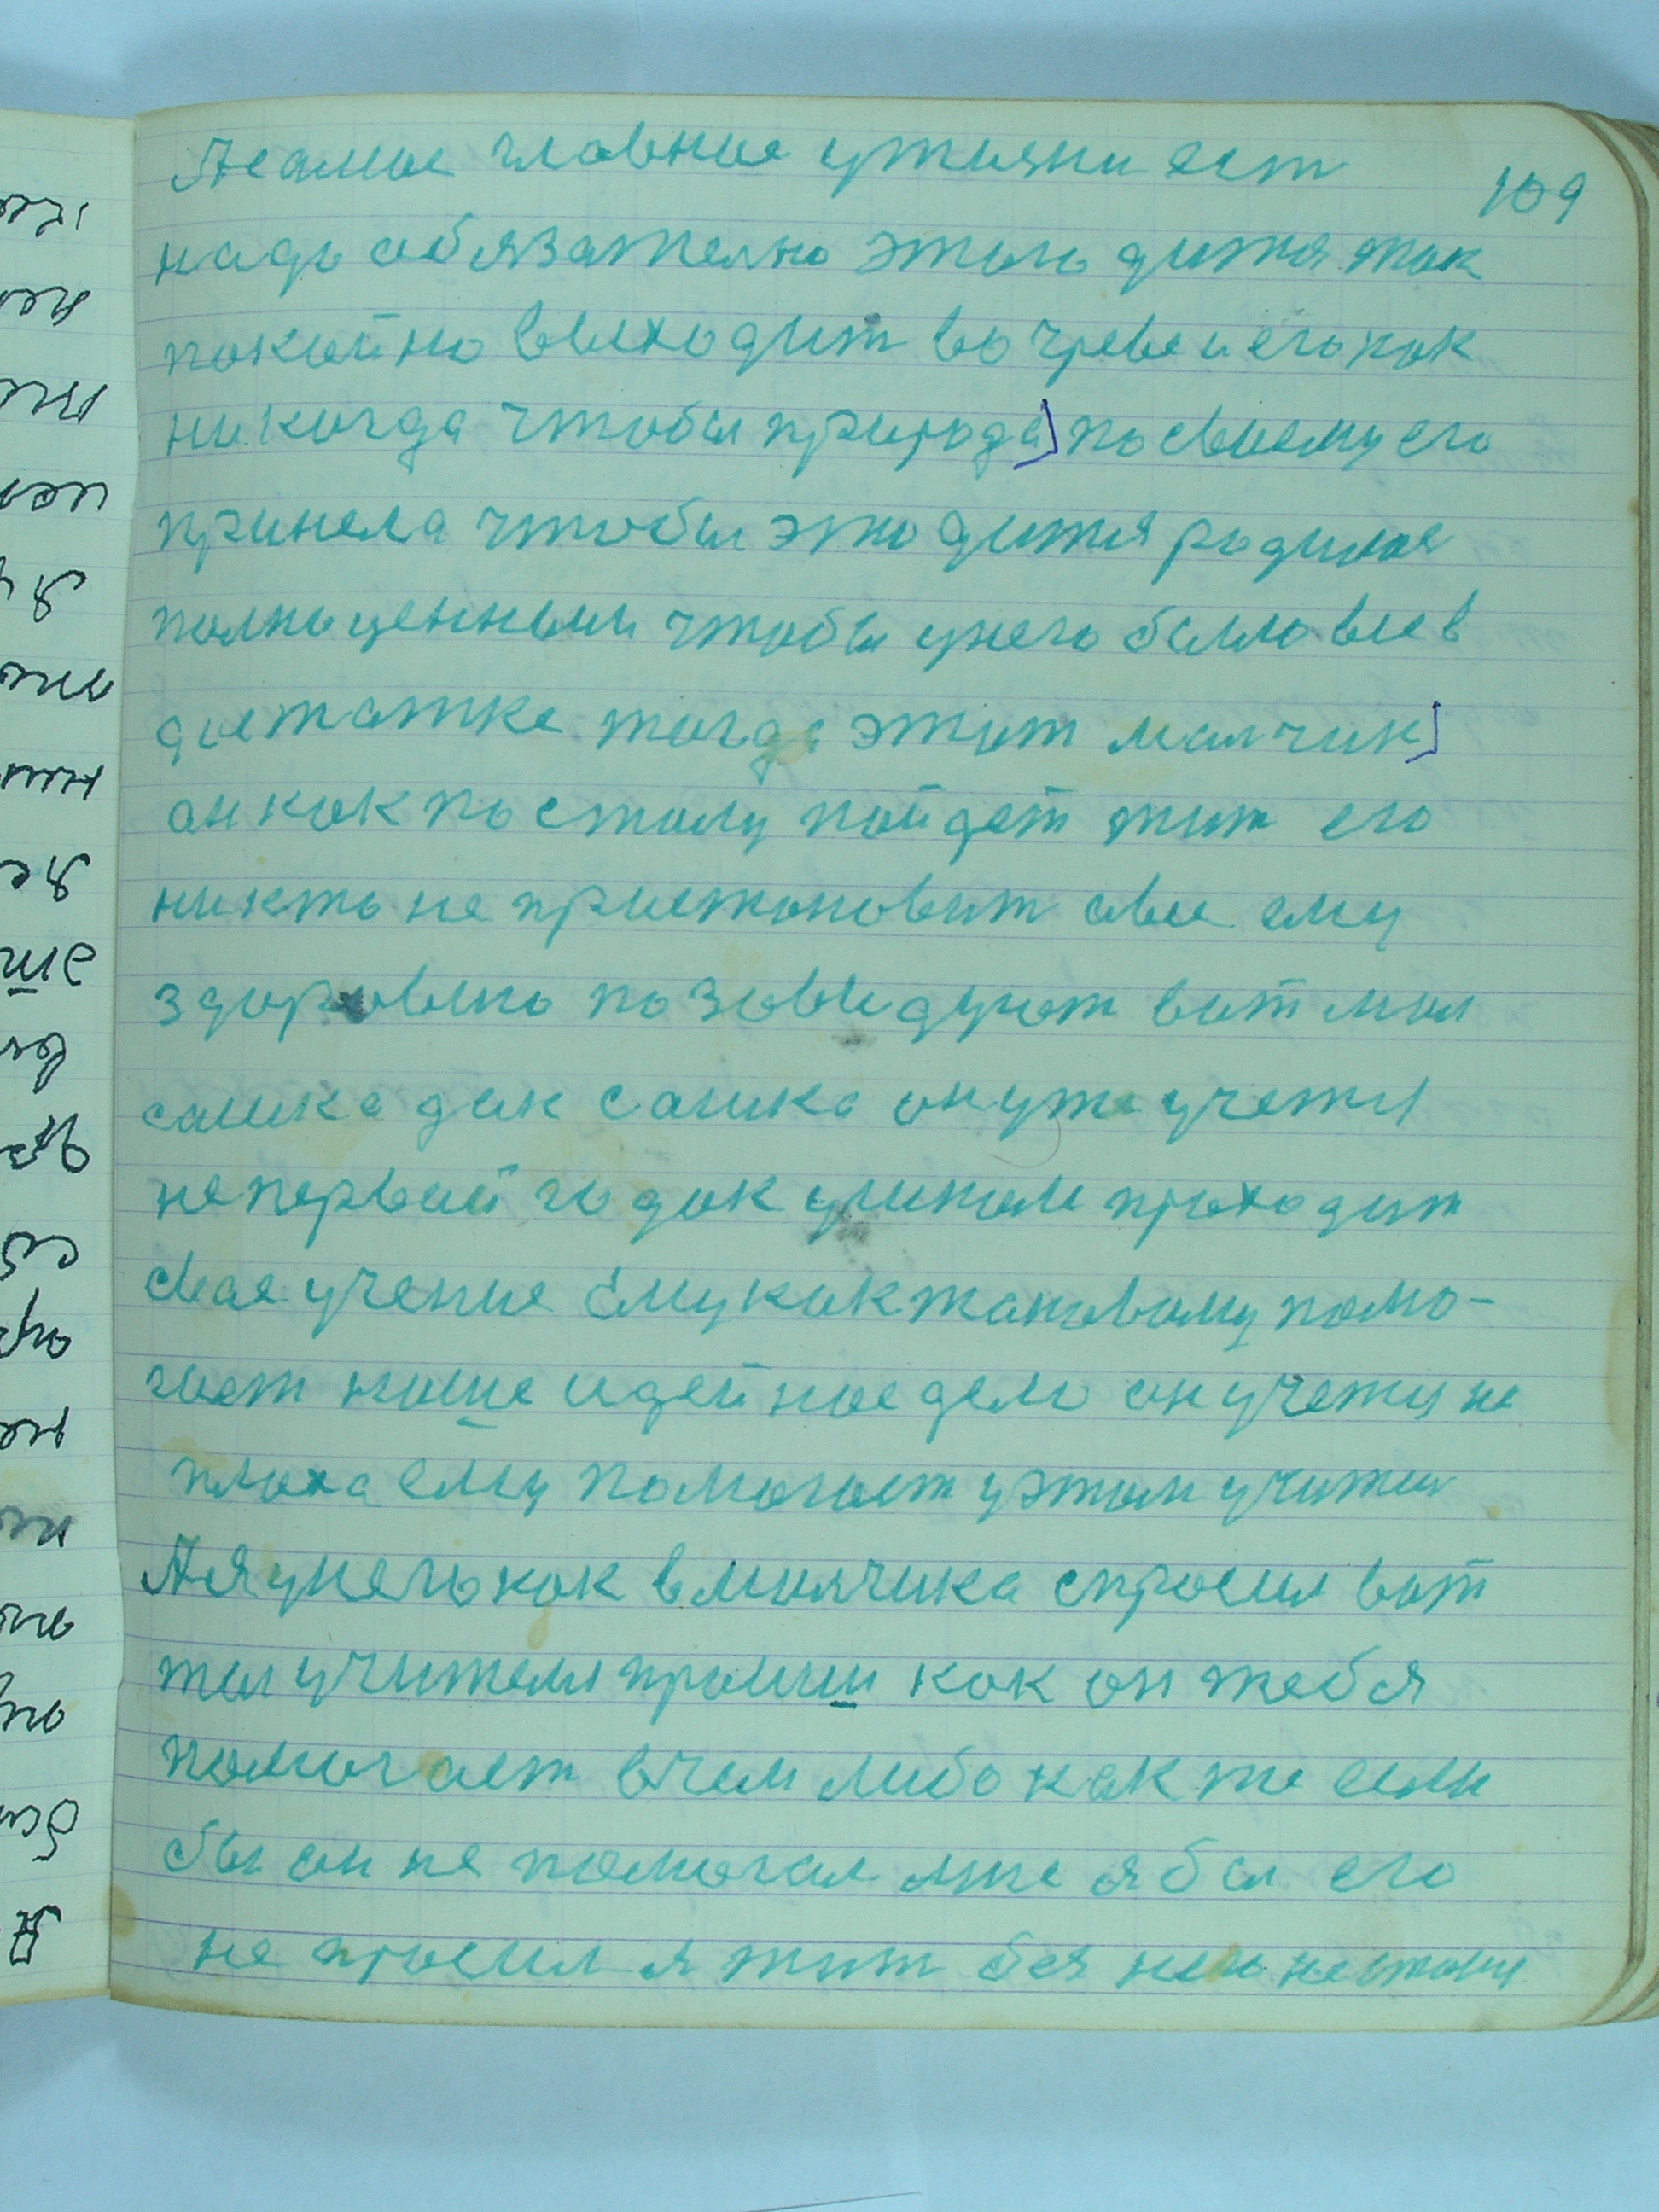 109
А самое главное ужизни ест
надо обязателно этого дитя так
покойно выходит во чреве и его как
никогда чтобы природа посвоему его
принела чтобы это дитя родилоя
полноценным чтобы унего было все в
достатке тогда этот малчик
он как по столу пойдет жит его
никто не приостоновит обо ему
здоровию позовидуют вот мол
сашка дак сашка он уже учетя
не первый годок умином проходит
свае учение ему как таковому помо-
гает наше идейное дело он учетя не
плоха ему помогает уэтом учитил
А я унего как вмалчика спросил вот
ты учителя просиш как он тебя
помогает вчем либо как же если
бы он не помогал мне я бы его
не просил я жит без него не стану